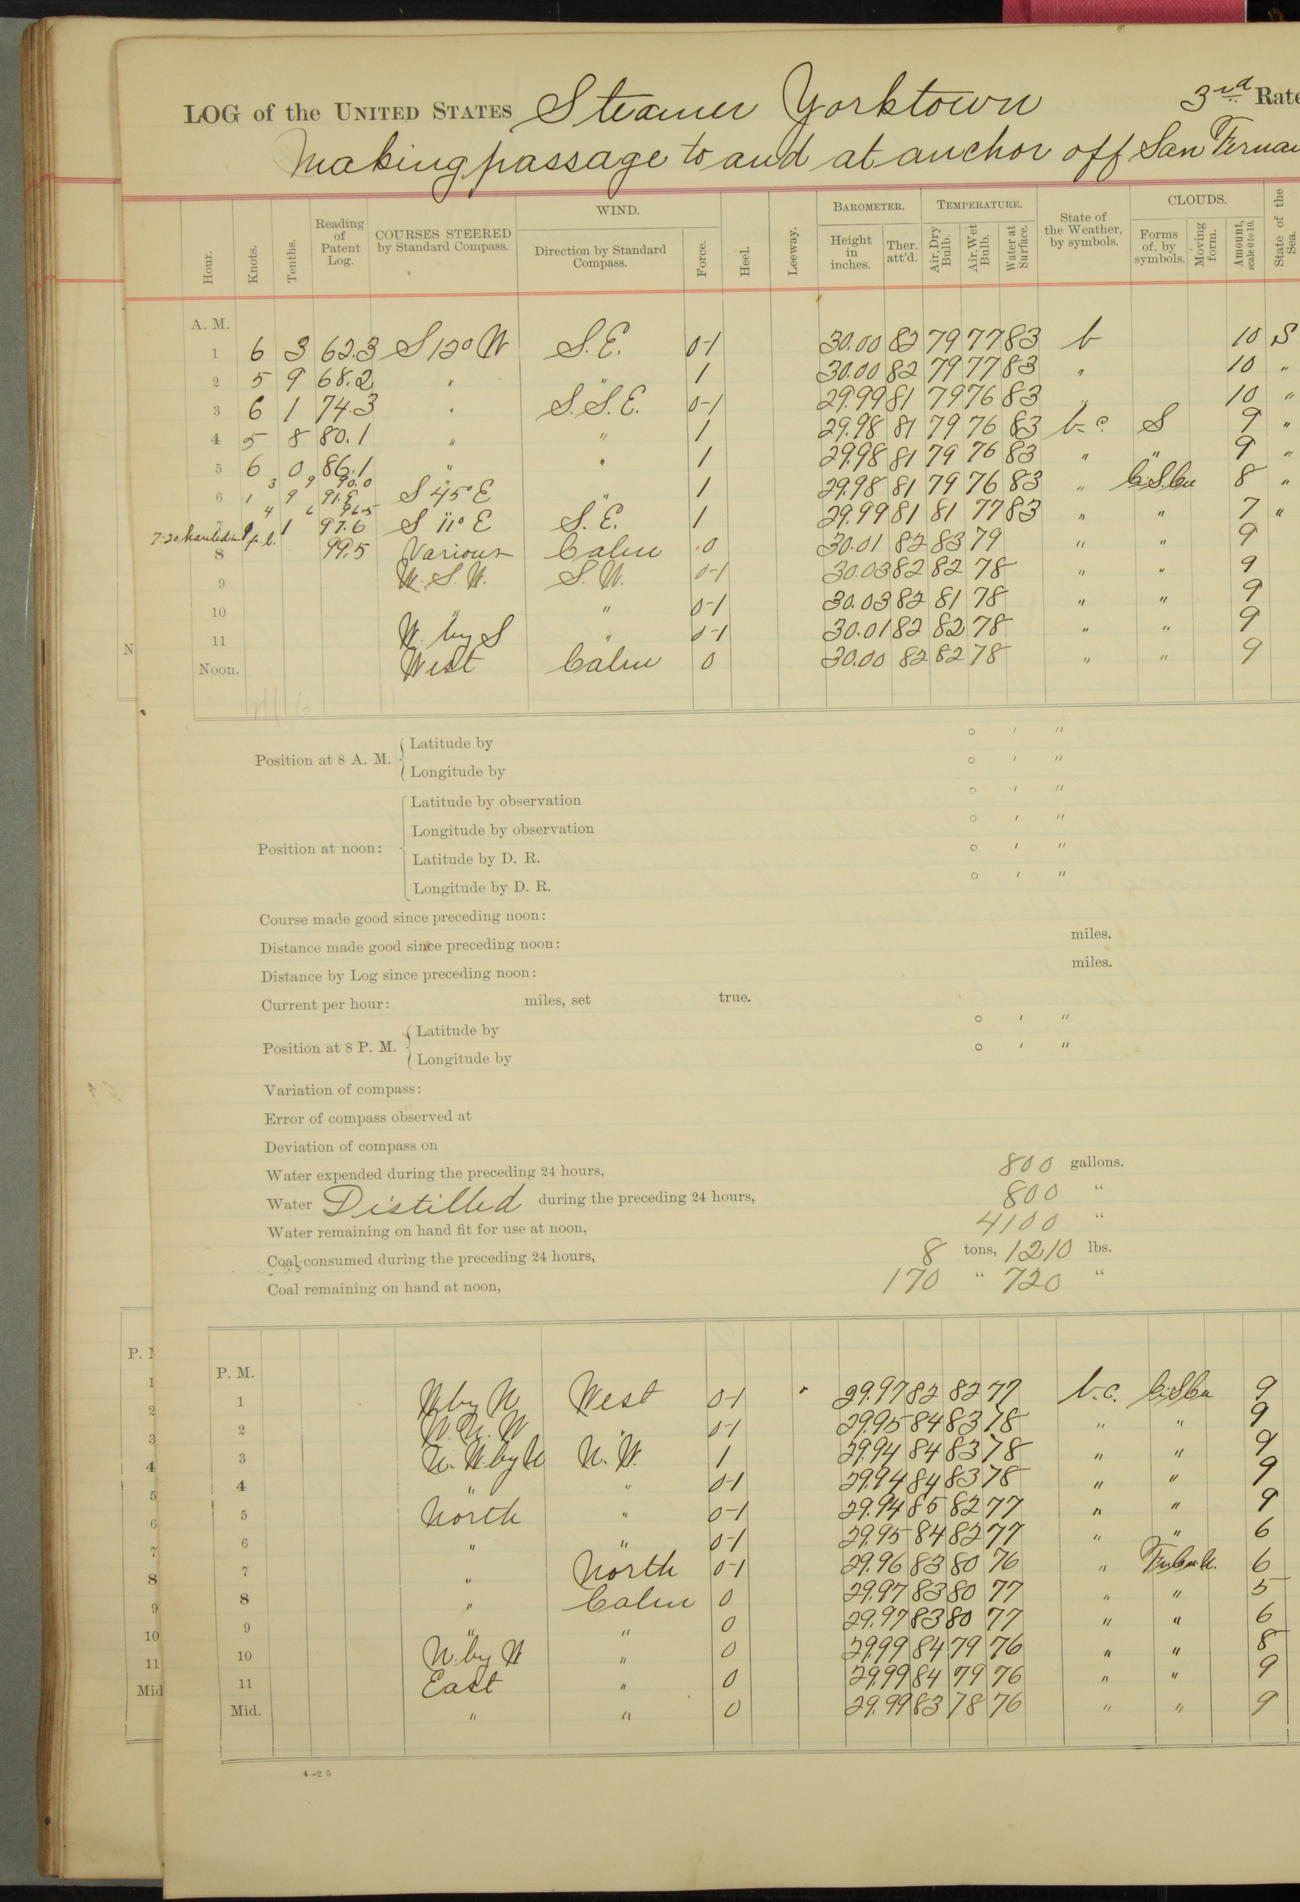 LOG of the UNITED STATES Steamer Yorktown 3rd Rate
Making passage to and at anchor off San Fernan
Hour. Knots. Tenths. Reading of Patent Log. COURSES STEERED by Standard Compass. WIND. Direction by Standard Compass. Force. Heel. Leeway. BAROMETER. Height in inches. Ther. att'd. TEMPERATURE. Air, Dry Bulb. Air, Wet Bulb. Water at Surface. State of the Weather, by symbols. CLOUDS. Forms of, by symbols. Moving form. Amount, scale 0 to 10. State of the Sea.
A. M.
1 6 3 62.3 S 12° W S.E. 0-1 30.00 82 79 77 83 b 10 S
2 5 9 68.2 " " 1 30.00 82 79 77 83 " 10 "
3 6 1 74.3 " S.S.E. 0-1 29.99 81 79 76 83 " 10 "
4 5 8 80.1 " " 1 29.98 81 79 76 83 b.c. S 9 "
5 6 0 86.1 " " 1 29.98 81 79 76 83 " " 9 "
3 9 90.0
6 1 9 91.8 S 45° E " 1 29.98 81 79 76 83 " Ci.S.Cu 8 "
4 6 96.5
1 97.6 S 11° E S.E. 1 29.99 81 81 77 83 " " 7 "
7:20 hauled in p.l.
8 99.5 Various Calm 0 30.01 82 83 79 " " 9
9 W.S.W. S.W. 0-1 30.03 82 82 78 " " 9
10 " " 0-1 30.03 82 81 78 " " 9
11 W. by S " 0-1 30.01 82 82 78 " " 9
Noon. West Calm 0 30.00 82 82 78 " " 9
N
Position at 8 A. M. Latitude by ° ' "
Longitude by ° ' "
Position at noon: Latitude by observation ° ' "
Longitude by observation ° ' "
Latitude by D. R. ° ' "
Longitude by D. R. ° ' "
Course made good since preceding noon:
Distance made good since preceding noon: miles.
Distance by Log since preceding noon: miles.
Current per hour: miles, set true.
Position at 8 P. M. Latitude by ° ' "
Longitude by ° ' "
Variation of compass:
Error of compass observed at
Deviation of compass on
Water expended during the preceding 24 hours, 800 gallons.
Water Distilled during the preceding 24 hours, 800 "
Water remaining on hand fit for use at noon, 4100 "
Coal consumed during the preceding 24 hours, 8 tons, 1210 lbs.
Coal remaining on hand at noon, 170 " 720 "
P. M.
1 W by N West 0-1 29.97 82 82 77 b.c. Ci.S.Cu 9
2 W.N.W " 0-1 29.95 84 83 78 " " 9
3 N.W. by N N.W. 1 29.94 84 83 78 " " 9
4 " " 0-1 29.94 84 83 78 " " 9
5 North " 0-1 29.94 85 82 77 " " 9
6 " " 0-1 29.95 84 82 77 " " 6
7 " North 0-1 29.96 83 80 76 " 6
8 " Calm 0 29.97 83 80 77 " " 5
9 " " 0 29.97 83 80 77 " " 6
10 N. by W " 0 29.99 84 79 76 " " 8
11 East " 0 29.99 84 79 76 " " 9
Mid. " " 0 29.99 83 78 76 " " 9
4—25
P. M
1
2
3
4
5
6
7
8
9
10
11
Mid